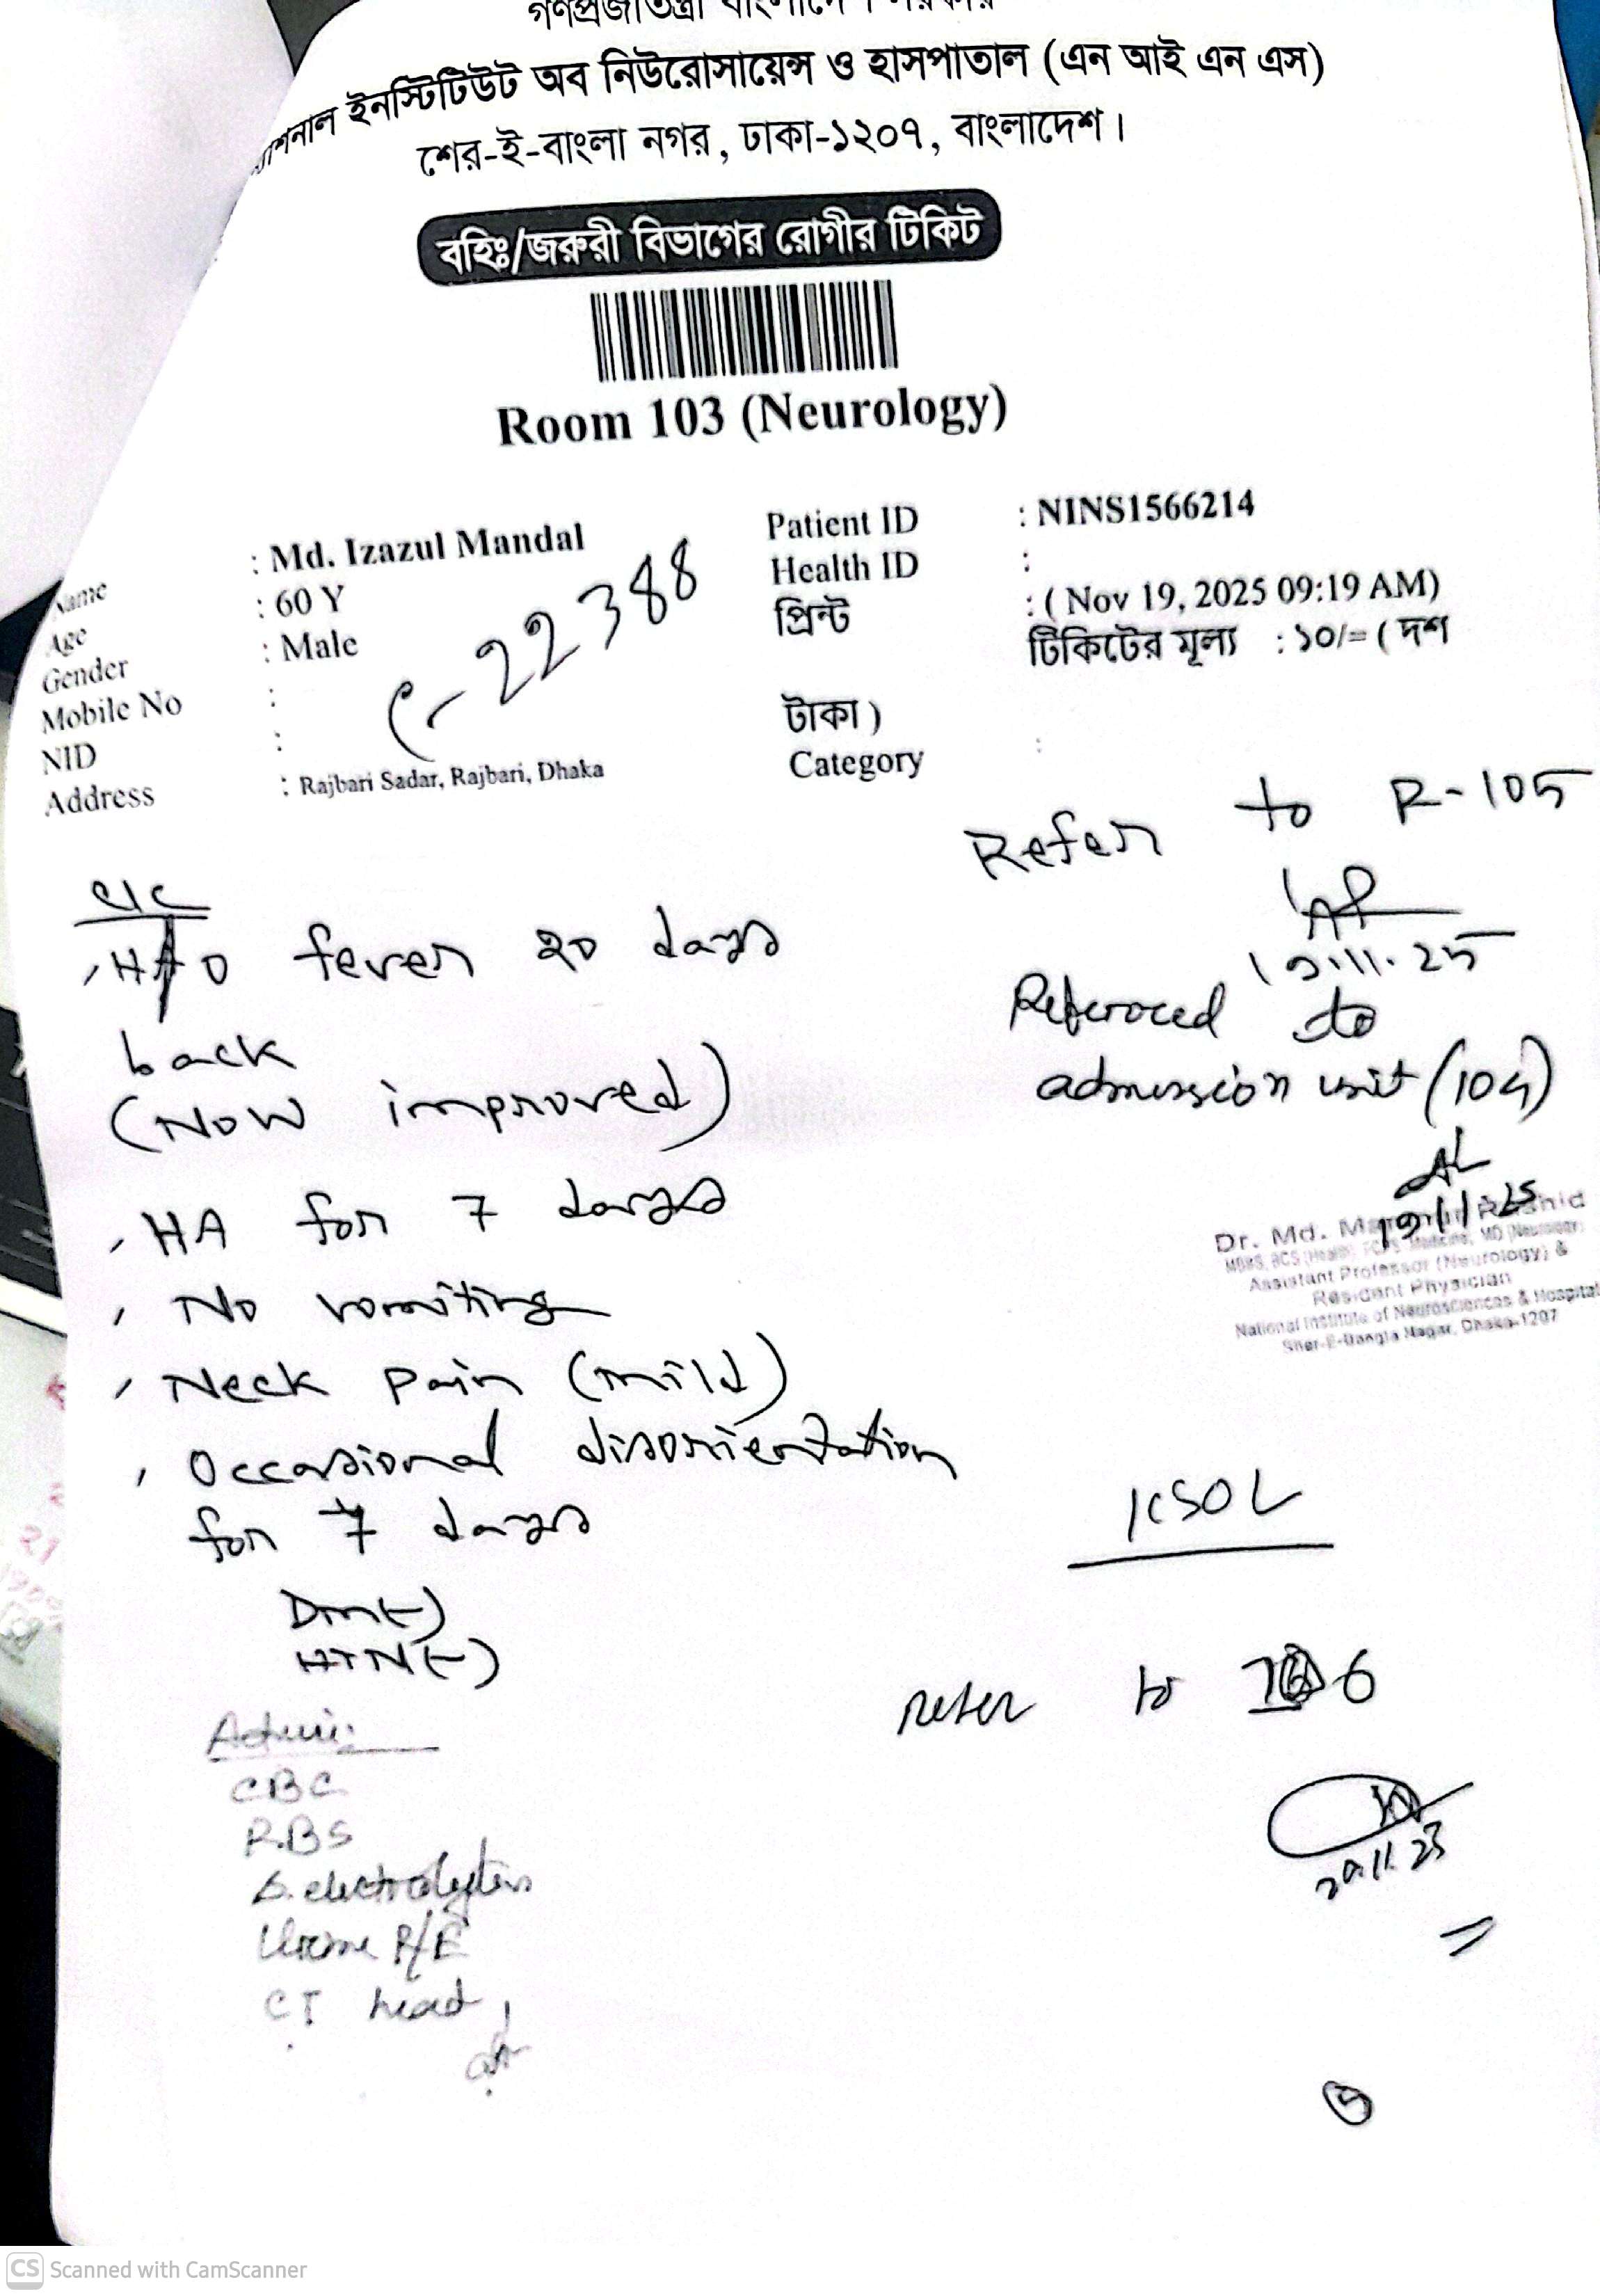 ইনস্টিটিউট অব নিউরোসায়েন্স ও হাসপাতাল (এন আই এন এস)
শের-ই-বাংলা নগর, ঢাকা-১২০৭, বাংলাদেশ।
বহিঃ/জরুরী বিভাগের রোগীর টিকিট
Room 103 (Neurology)
Name : Md. Izazul Mandal
Age : 60 Y
Gender : Male
Mobile No :
NID :
Address : Rajbari Sadar, Rajbari, Dhaka
22388
Patient ID : NINS1566214
Health ID :
প্রিন্ট : ( Nov 19, 2025 09:19 AM)
টিকিটের মূল্য : ১০/= ( দশ
টাকা )
Category :
C/C
H/O fever 20 days
back
(Now improved)
HA for 7 days
No vomiting
Neck pain (mild)
Occasional disorientation
for 7 days
DM(-)
HTN(-)
CBC
RBS
S. electrolytes
Urine R/E
CT head
Refer to R-105
19.11.25
to
admission unit (104)
19/11/25
Dr. Md.
Assistant Professor (Neurology) &
Resident Physician
National Institute of NeuroSciences & Hospital
Sher-E-Bangla Nagar, Dhaka-1207
ICSOL
refer to
CS Scanned with CamScanner